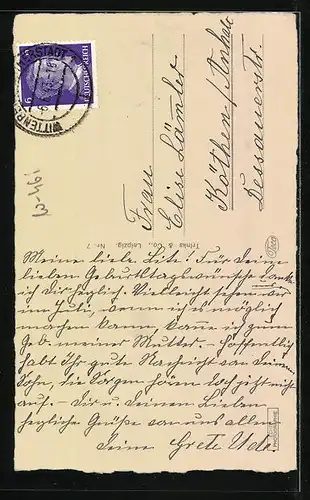 WITTENBERG LUTHERSTADT
DEUTSCHES REICH
6
W-461
Frau
Elise Lämler
Köthen/Anhalt
Dessauerstr.
Trinks & Co., Leipzig. Nr. 7
Trinco
Meine liebe Lise! Für Deine
lieben Geburtstagswünsche danke
ich Dir herzlich. Vielleicht sehen wir
im Juli, wenn ich es möglich
machen kann, komme ich zum
Geb. meiner Mutter. - Hoffentlich
habt Ihr gute Nachricht von Deinem
Sohn, die Sorgen hören doch jetzt nicht
auf. - Dir u. Deinen Lieben
herzliche Grüße von uns allen
Deine Grete